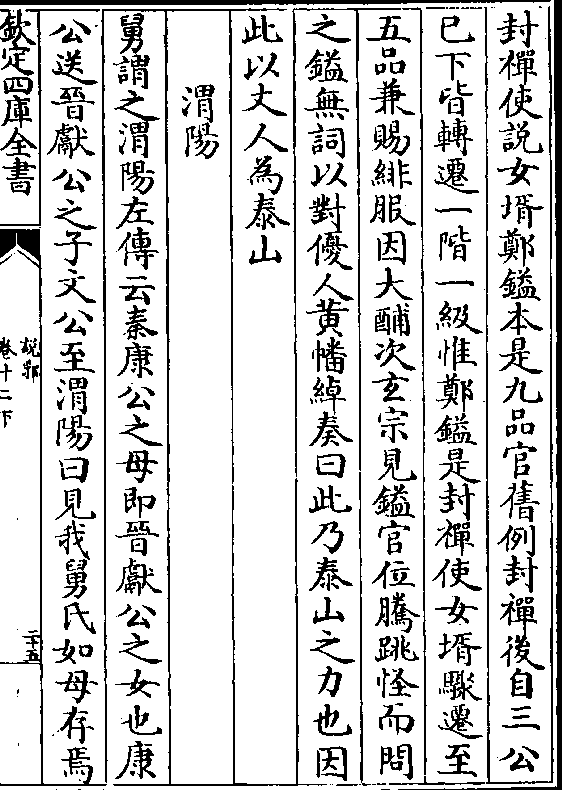 封禪使說女壻鄭鎰本是九品官舊例封禪後自三公
已下皆轉遷一階一級惟鄭鎰是封禪使女壻驟遷至
五品兼賜緋服因大酺次玄宗見鎰官位騰跳怪而問
之鎰無詞以對優人黃幡綽奏曰此乃泰山之力也因
此以丈人為泰山
渭陽
舅謂之渭陽左傳云秦康公之母即晉獻公之女也康
公送晉獻公之子文公至渭陽曰見我舅氏如母存焉
欽定四庫全書
說郛
卷十二下
二十五